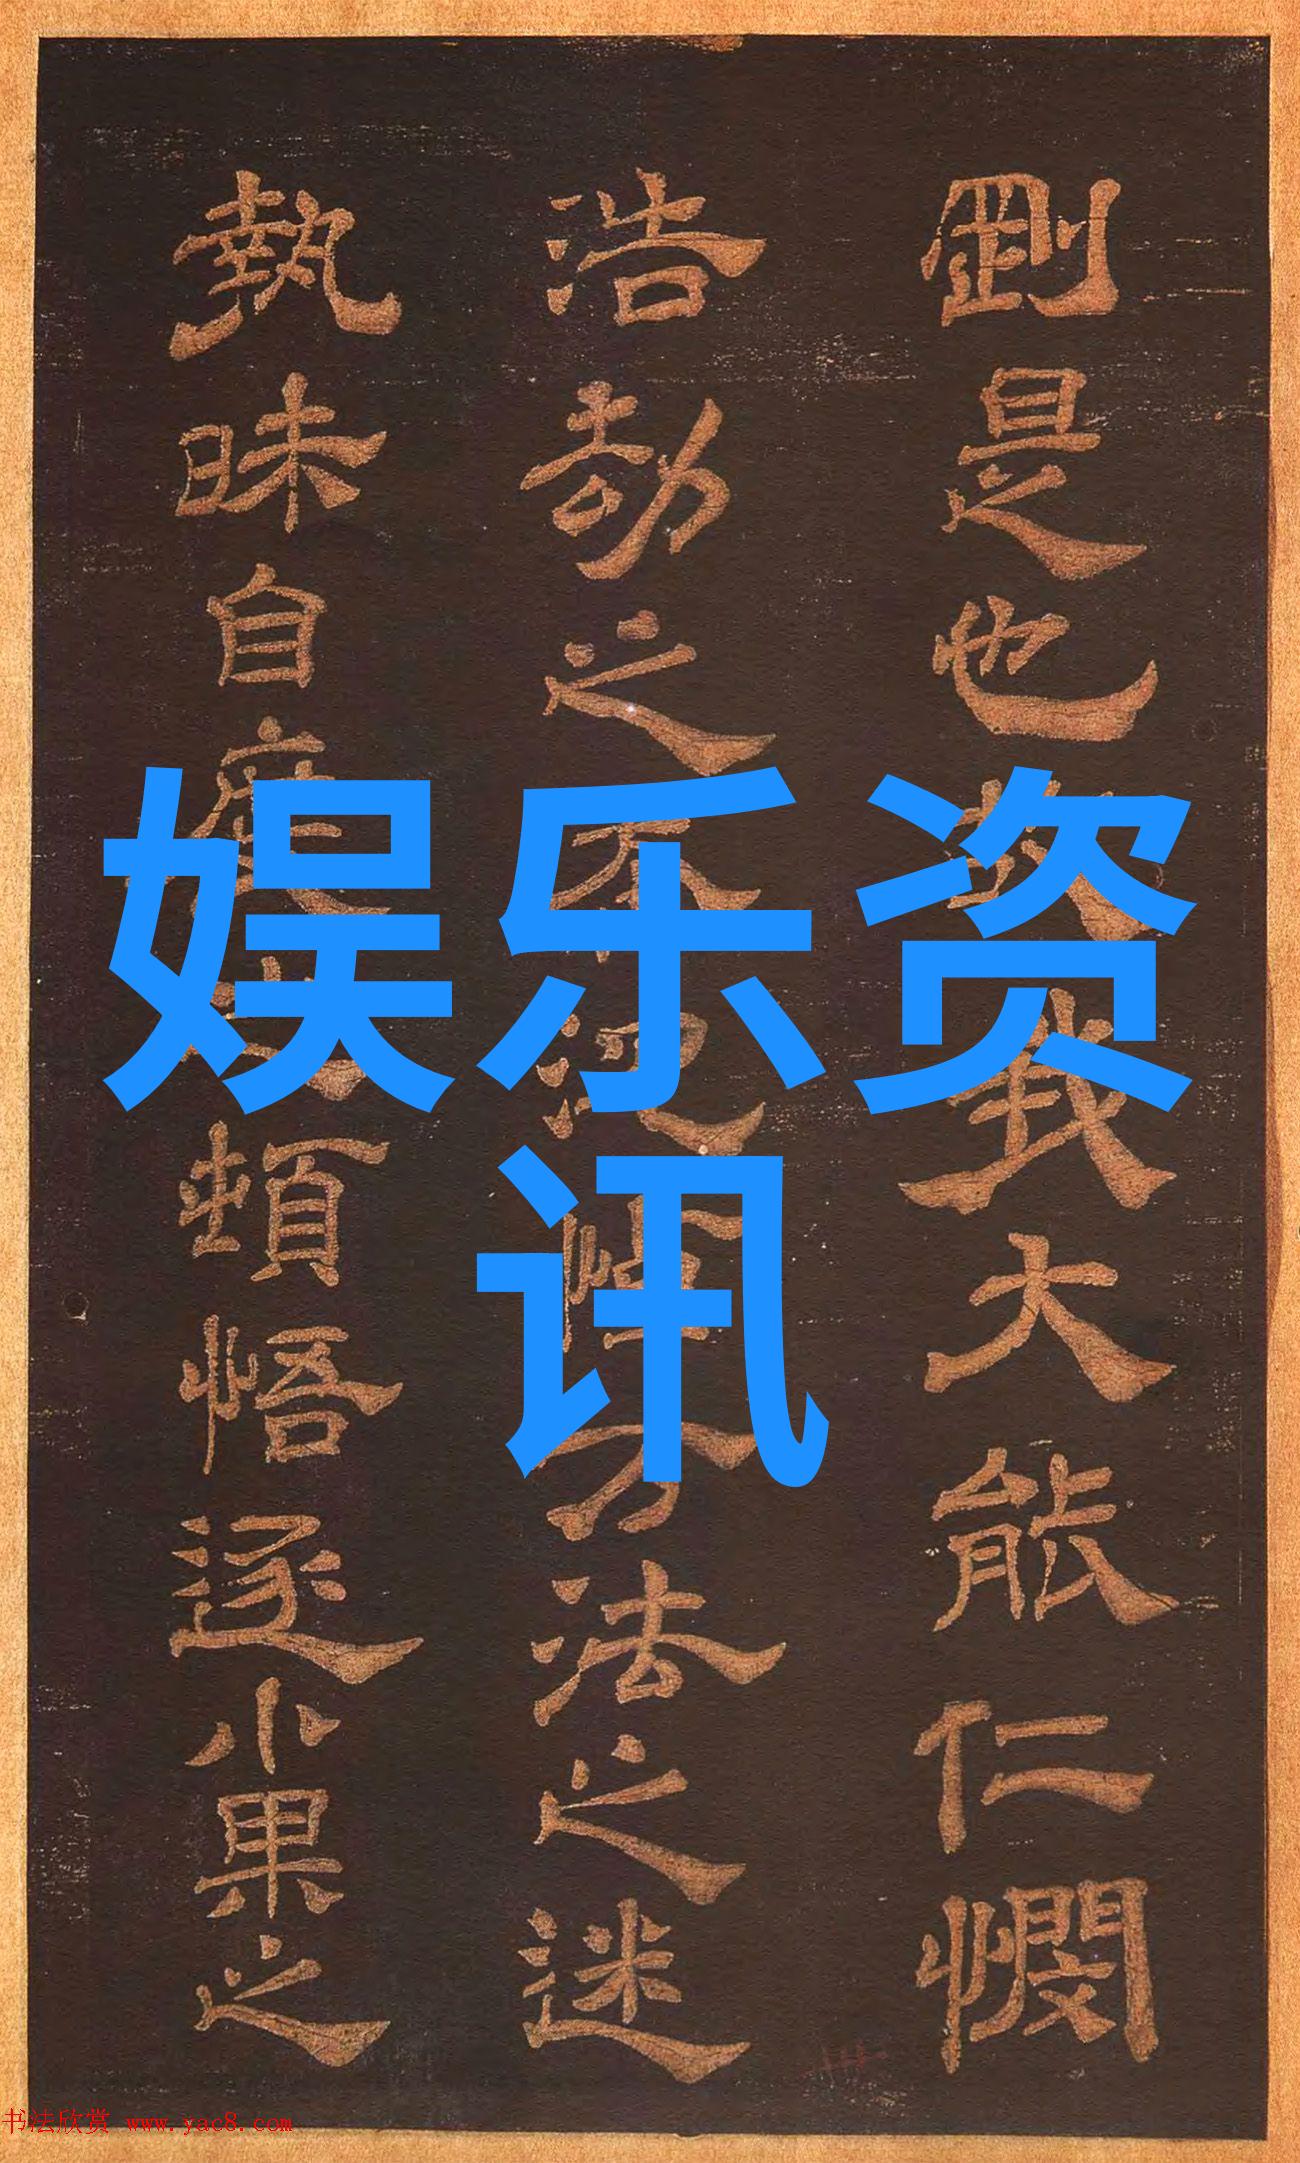 剛是也我大能仁憫
浩劫之法之迷
執昧自頓悟逐小果之
娱乐资
讯
书法欣赏 www.yac8.com